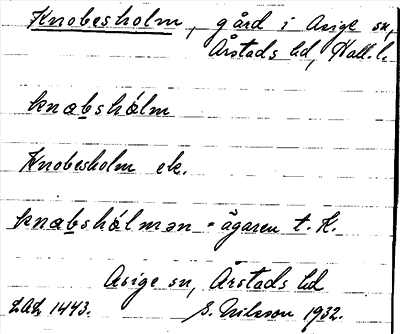 Knobesholm, gård i Asige sn,
Årstads hd, Hall. l.
knæbshólm
Knobesholm ek.
knæbshólmən = ägaren t. K.
Asige sn, Årstads hd
LAL 1443. S. Nilsson 1932.